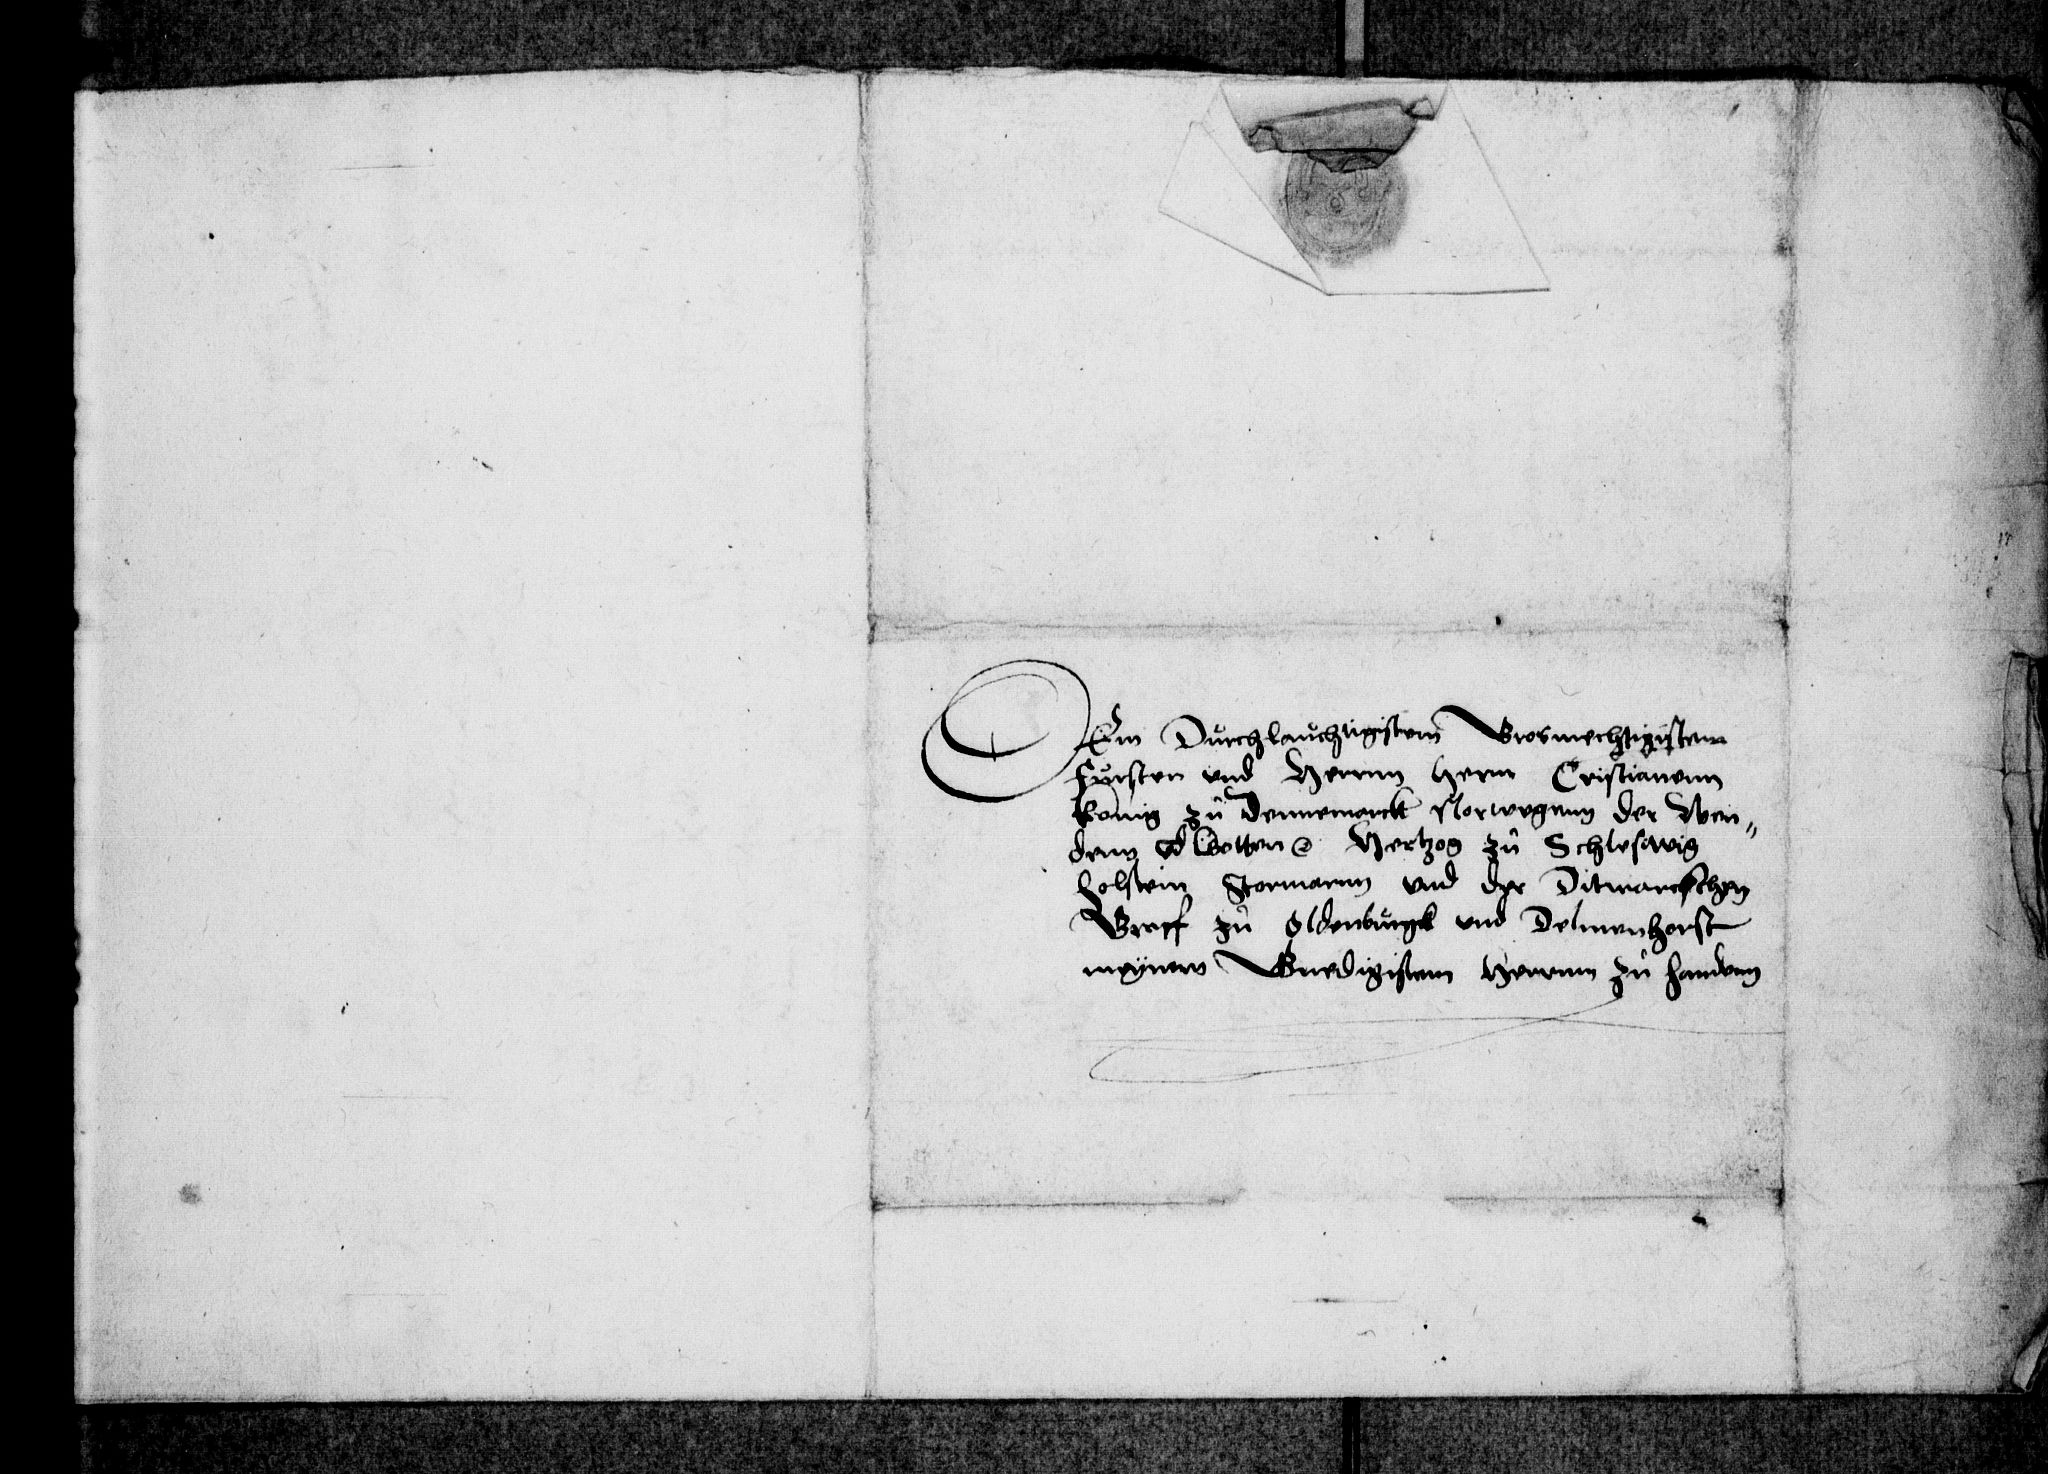 DEm Durchlauchtigistem Grosmechtigistem
Fursten vnd Herrnn Hern Cristianenn
Konig zu Dennemarck Norwegenn der Wen„
denn vnd Gotten Hertzog zu Schleswig
Holstein Stormarnn vnd der Ditmarschen
Graff zu Oldenburgk vnd Delmenhorst
meynem Gnedigistem Herrnn zu handenn